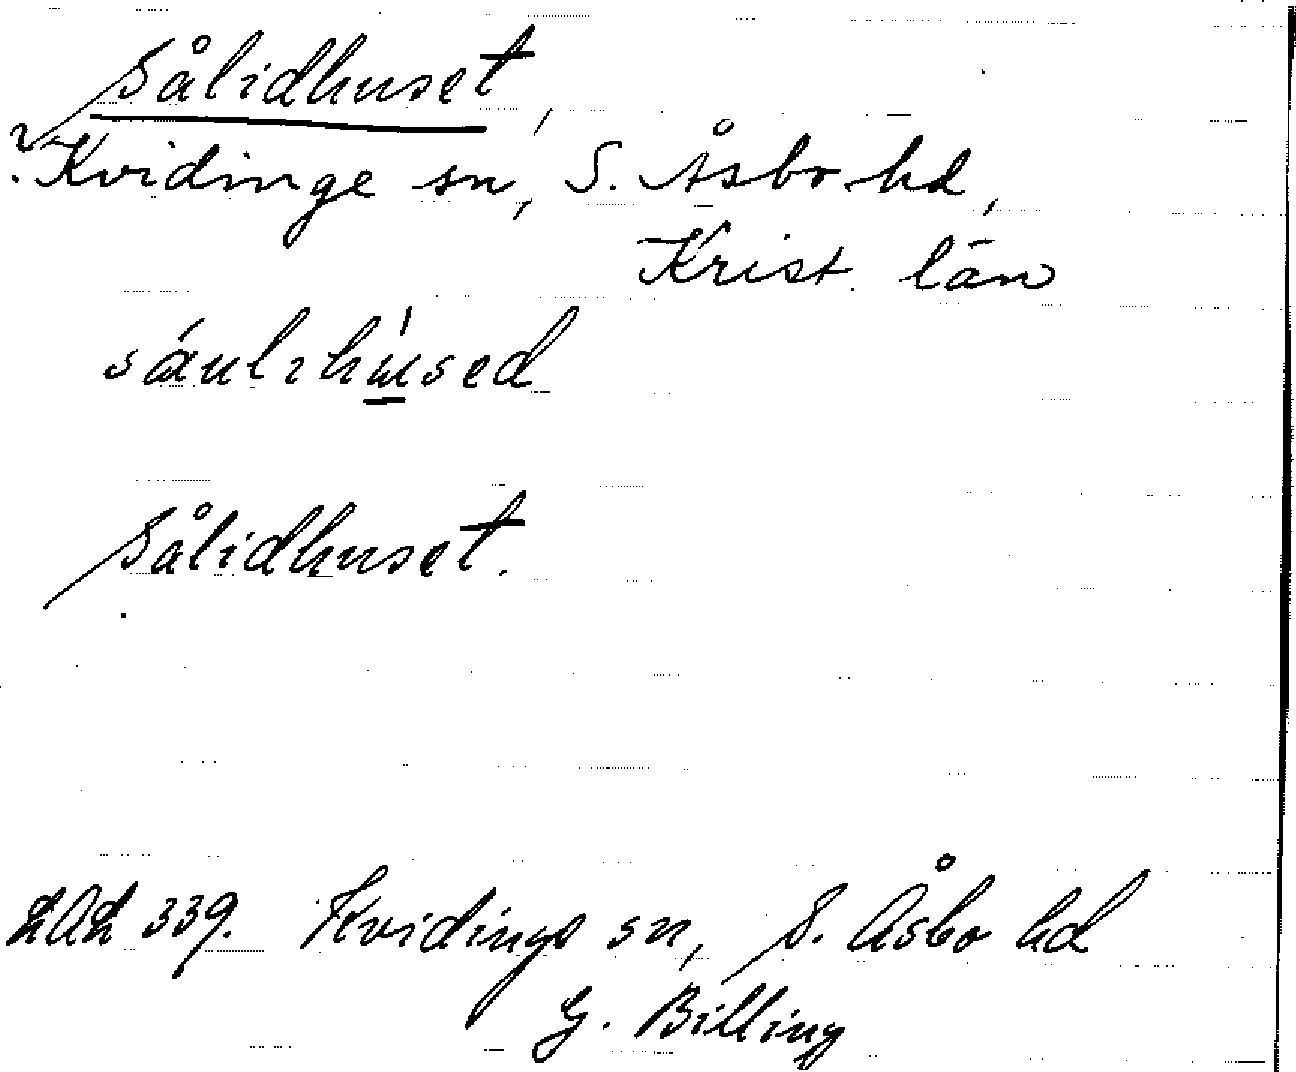 Sålidhuset,
? Kvidinge sn, S. Åsbo hd,
Krist. län
sáulihúsed
Sålidhuset.
LAL 339. Kvidinge sn, S. Åsbo hd
G. Billing